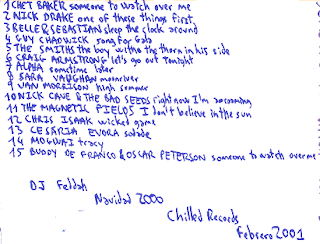 1 CHET BAKER someone to watch over me
2 NICK DRAKE one of these things first
3 BELLE & SEBASTIAN sleep the clock around
4 GUY CHADWICK song for Gala
5 THE SMITHS the boy with the thorn in his side
6 CRAIG ARMSTRONG let's go out tonight
7 ALPHA sometime later
8 SARA VAUGHAN moonriver
9 VAN MORRISON high summer
10 NICK CAVE & THE BAD SEEDS right now I'm aroaming
11 THE MAGNETIC FIELDS I don't believe in the sun
12 CHRIS ISAAK wicked game
13 CESARIA EVORA sodade
14 MOGWAI tracy
15 BUDDY DE FRANCO & OSCAR PETERSON someone to watch over me
DJ Feldah
Navidad 2000
Chilled Records
Febrero 2001